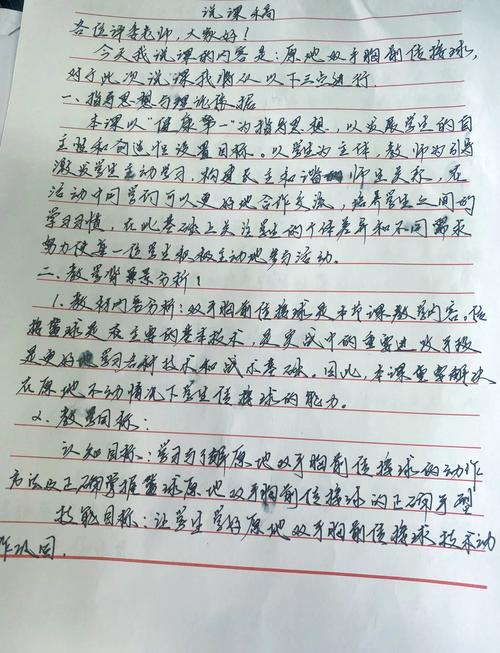 说课稿
各位评委老师，大家好！
今天我说课的内容是：原地双手胸前传接球，
对于此次说课我将从以下三点进行
一、指导思想与理论依据
本课以“健康第一”为指导思想，以发展学生的自
主性和创造性设置目标。以学生为主体，教师为引导
激发学生主动学习，构建民主和谐师生关系，在
活动中同学们可以更好地合作交流，培养学生之间的
学习习惯，在此基础上关注学生的个体差异和不同需求
努力使每一位学生积极主动地参与活动。
二、教学背景分析：
1.教材内容分析：双手胸前传接球是本节课教学内容，传
接篮球是在主要的基本技术，是实战中的重要进攻手段
是更好地学习各种技术和战术基础。因此，本课重要解决
在原地不动情况下学生传接球的能力。
2.教学目标：
认知目标：学习与了解原地双手胸前传接球的动作
方法及正确掌握篮球原地双手胸前传接球的正确手型
技能目标：让学生学好原地双手胸前传接球技术动
作巩固．